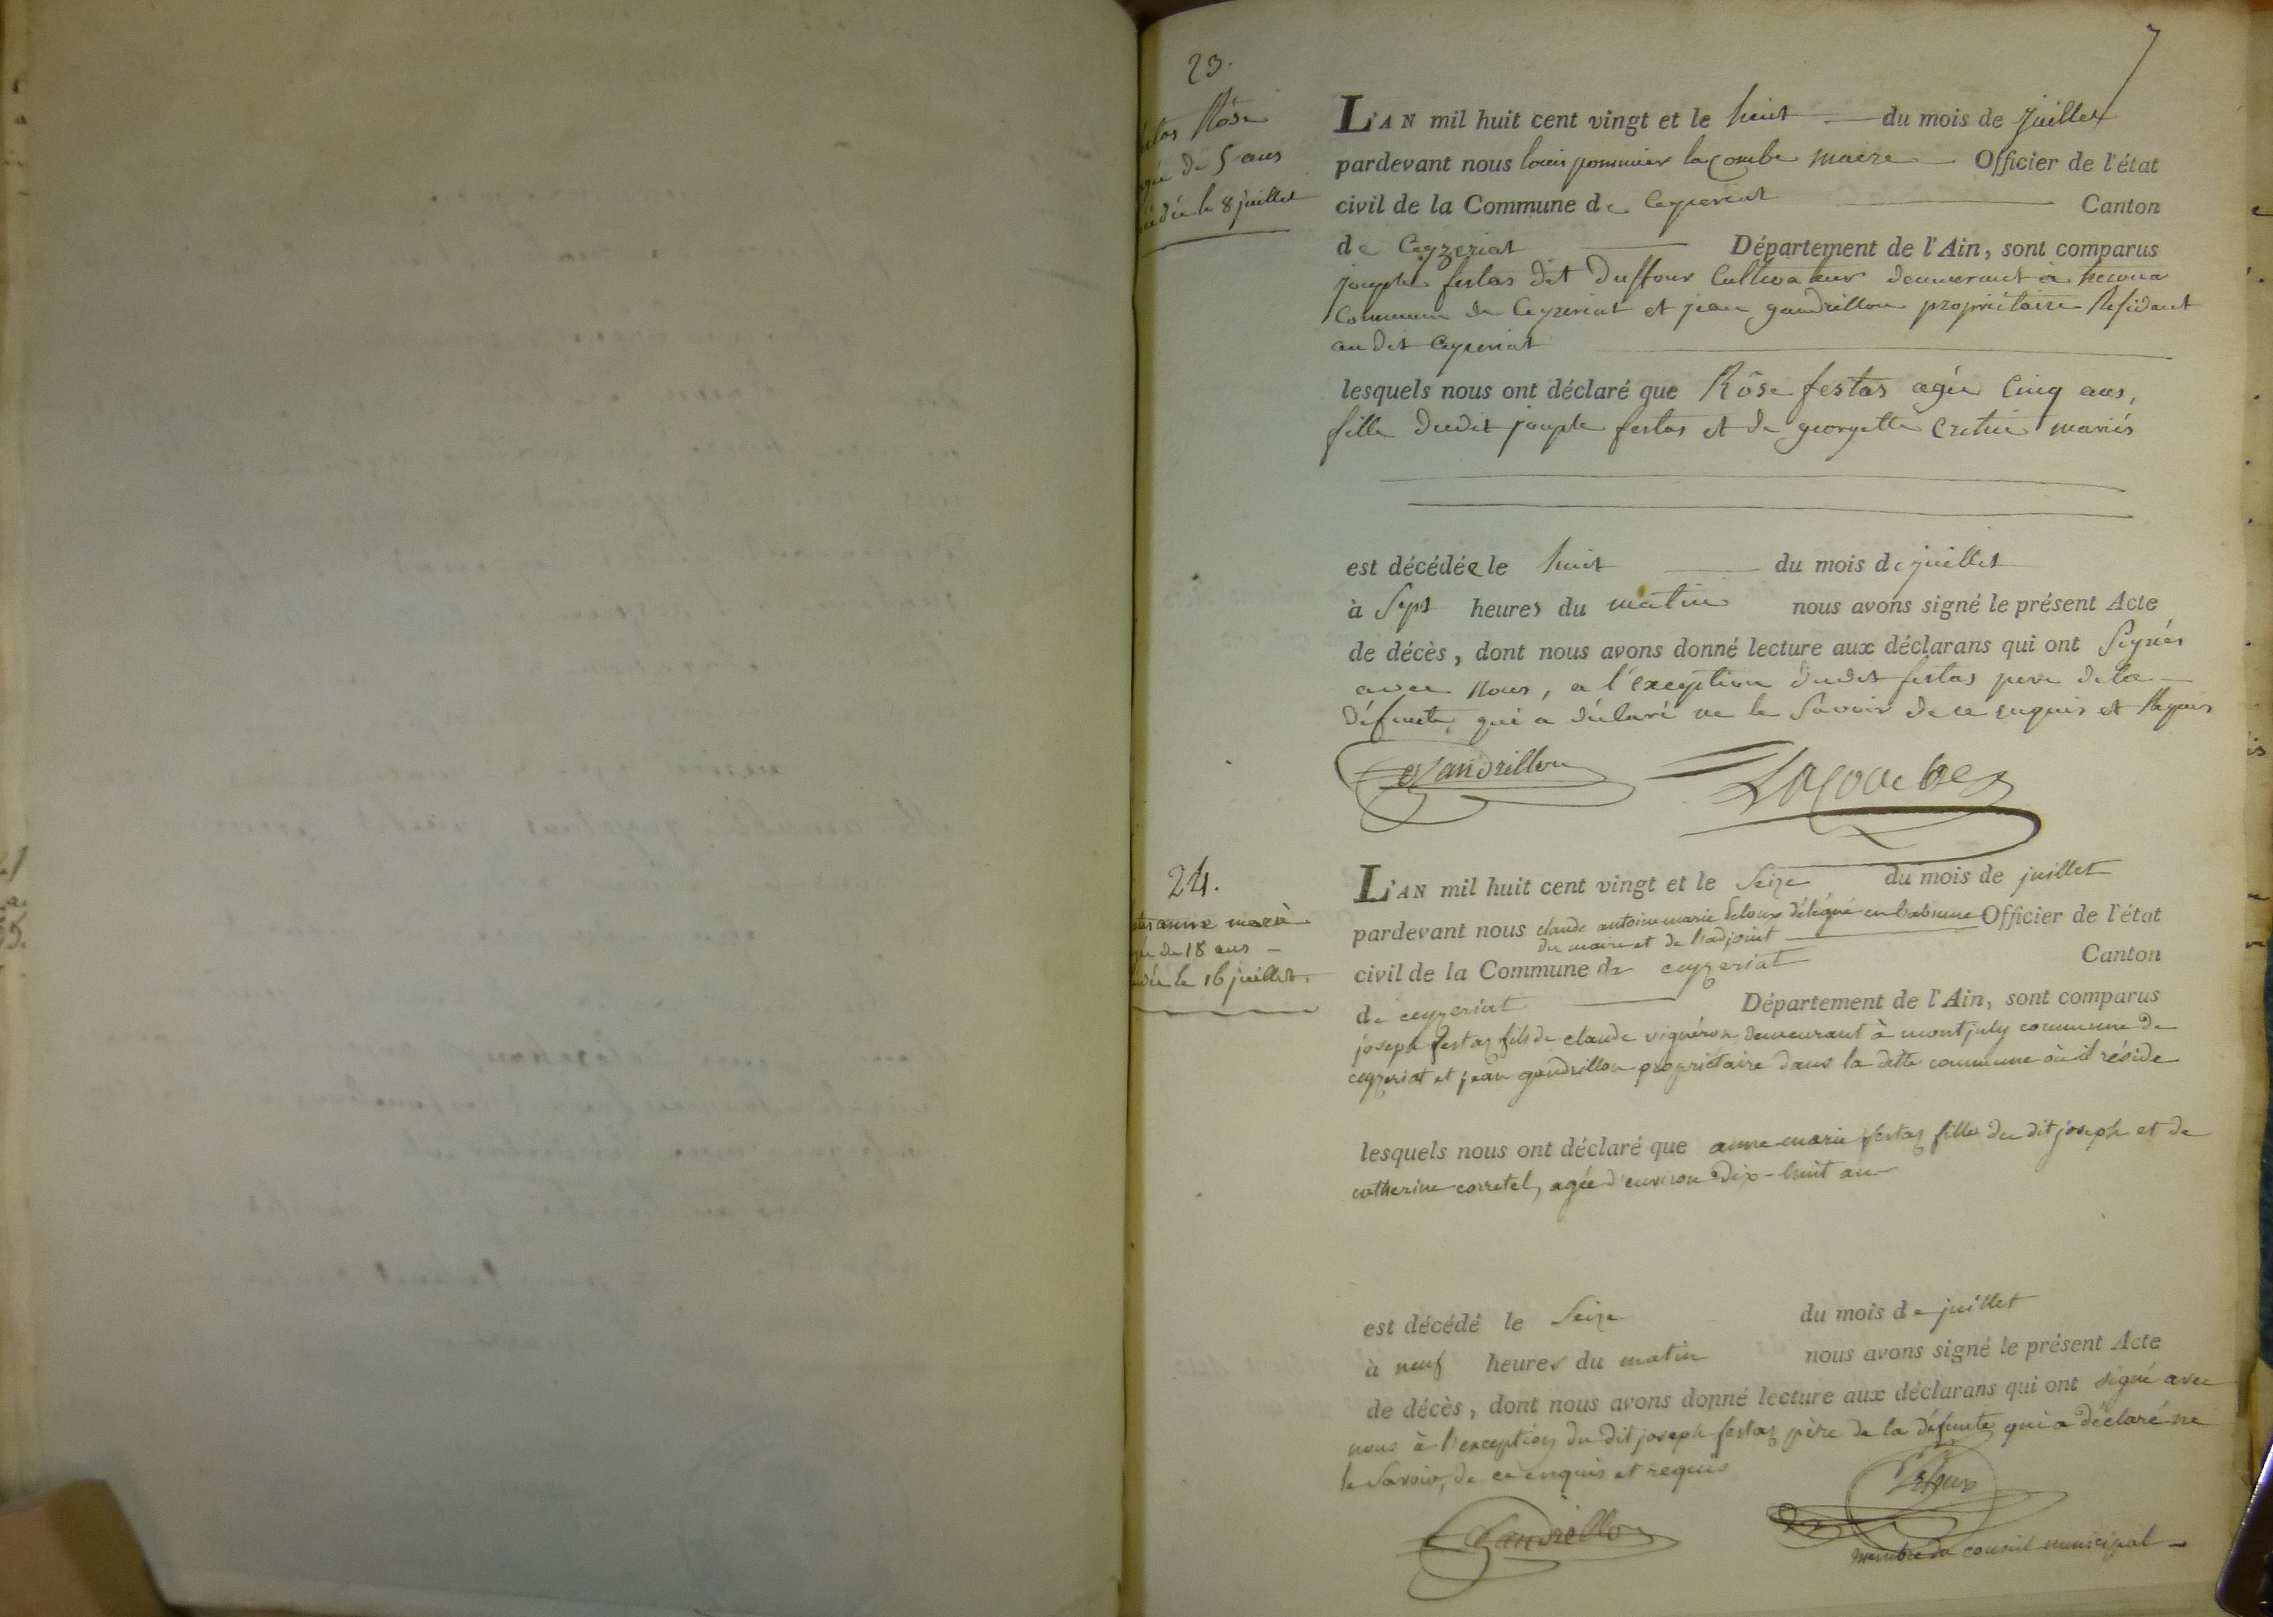 7
23.
Rôse
de 5 ans
le 8 juillet
L'AN mil huit cent vingt et le huit du mois de juillet
pardevant nous louis pommier lacombe maire Officier de l'état
civil de la Commune de Ceyzeriat Canton
de Ceyzeriat Département de l'Ain, sont comparus
joseph festas dit Duffour Cultivateur demeurant à
Commune de Ceyzeriat et jean gandrillon propriétaire Résidant
au dit Ceyzeriat
lesquels nous ont déclaré que Rôse festas agée Cinq ans,
fille dudit joseph festas et de georgette Cretin mariés
est décédée le huit du mois de juillet
à Sept heures du matin nous avons signé le présent Acte
de décès, dont nous avons donné lecture aux déclarans qui ont Signés
avec Nous, a l'exception dudit festas pere dela
défunte, qui a déclaré ne le Savoir de ce enquis et Requis
Gandrillon Lacombe
24.
anne marie
de 18 ans
le 16 juillet.
L'AN mil huit cent vingt et le Seize du mois de juillet
pardevant nous claude antoine marie Deloux délégué en l'absence Officier de l'état
du maire et de l'adjoint
civil de la Commune de ceyzeriat Canton
de ceyzeriat Département de l'Ain, sont comparus
joseph festaz fils de claude vigneron demeurant à montjuly commune de
ceyzeriat et jean gandrillon propriétaire dans la dite commune où il réside
lesquels nous ont déclaré que anne marie festaz fille du dit joseph et de
catherine corretel, agée d'environ Dix-huit an
est décédé le Seize du mois de juillet
à neuf heures du matin nous avons signé le présent Acte
de décès, dont nous avons donné lecture aux déclarans qui ont signé avec
nous à l'exception du dit joseph festaz père de la défunte qui a déclaré ne
le Savoir, de ce enquis et requis
Gandrillon Deloux
membre du conseil municipal